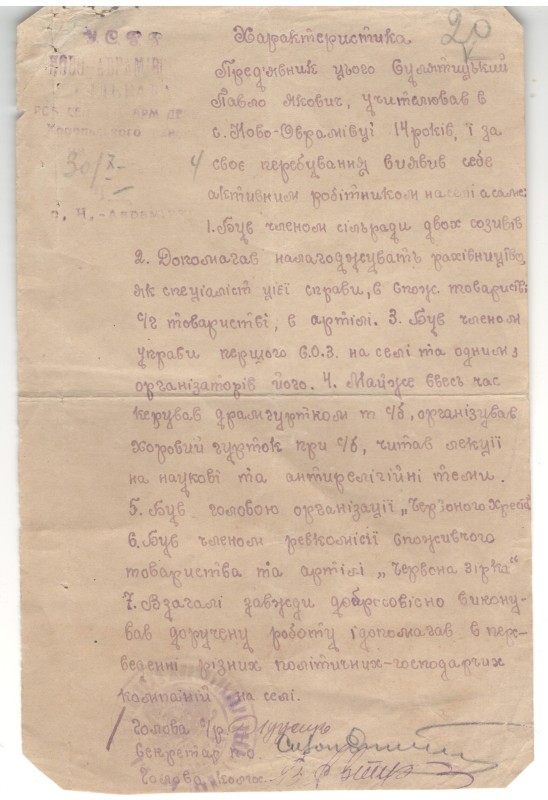 У С Р Р
Характеристика
20
Пред'явник цього Сулятицький
Павло Якович, учителював в
с. Ново-Оврамівці 14 років, і за
30/X
4
своє перебування виявив себе
активним робітником на селі а саме:
1. Був членом сільради двох созивів
2. Допомагав налагоджувать рахівництво,
як спеціаліст цієї справи, в спож. товаристві
с/г товаристві, в артілі. 3. Був членом
управи першого С.О.З. на селі та одним з
організаторів його. 4. Майже ввесь час
керував драмгуртком т с/б, організував
хоровий гурток при с/б, читав лекції
на наукові та антирелігійні теми.
5. Був головою організації „Червоного Хреста"
6. Був членом ревкомісії споживчого
товариства та артілі „Червона зірка"
7. Взагалі завжди добросовісно викону-
вав доручену роботу і допомагав в пере-
веденні різних політичних-господарчих
кампаній на селі.
Голова с/р
Секретар
Голова колг.